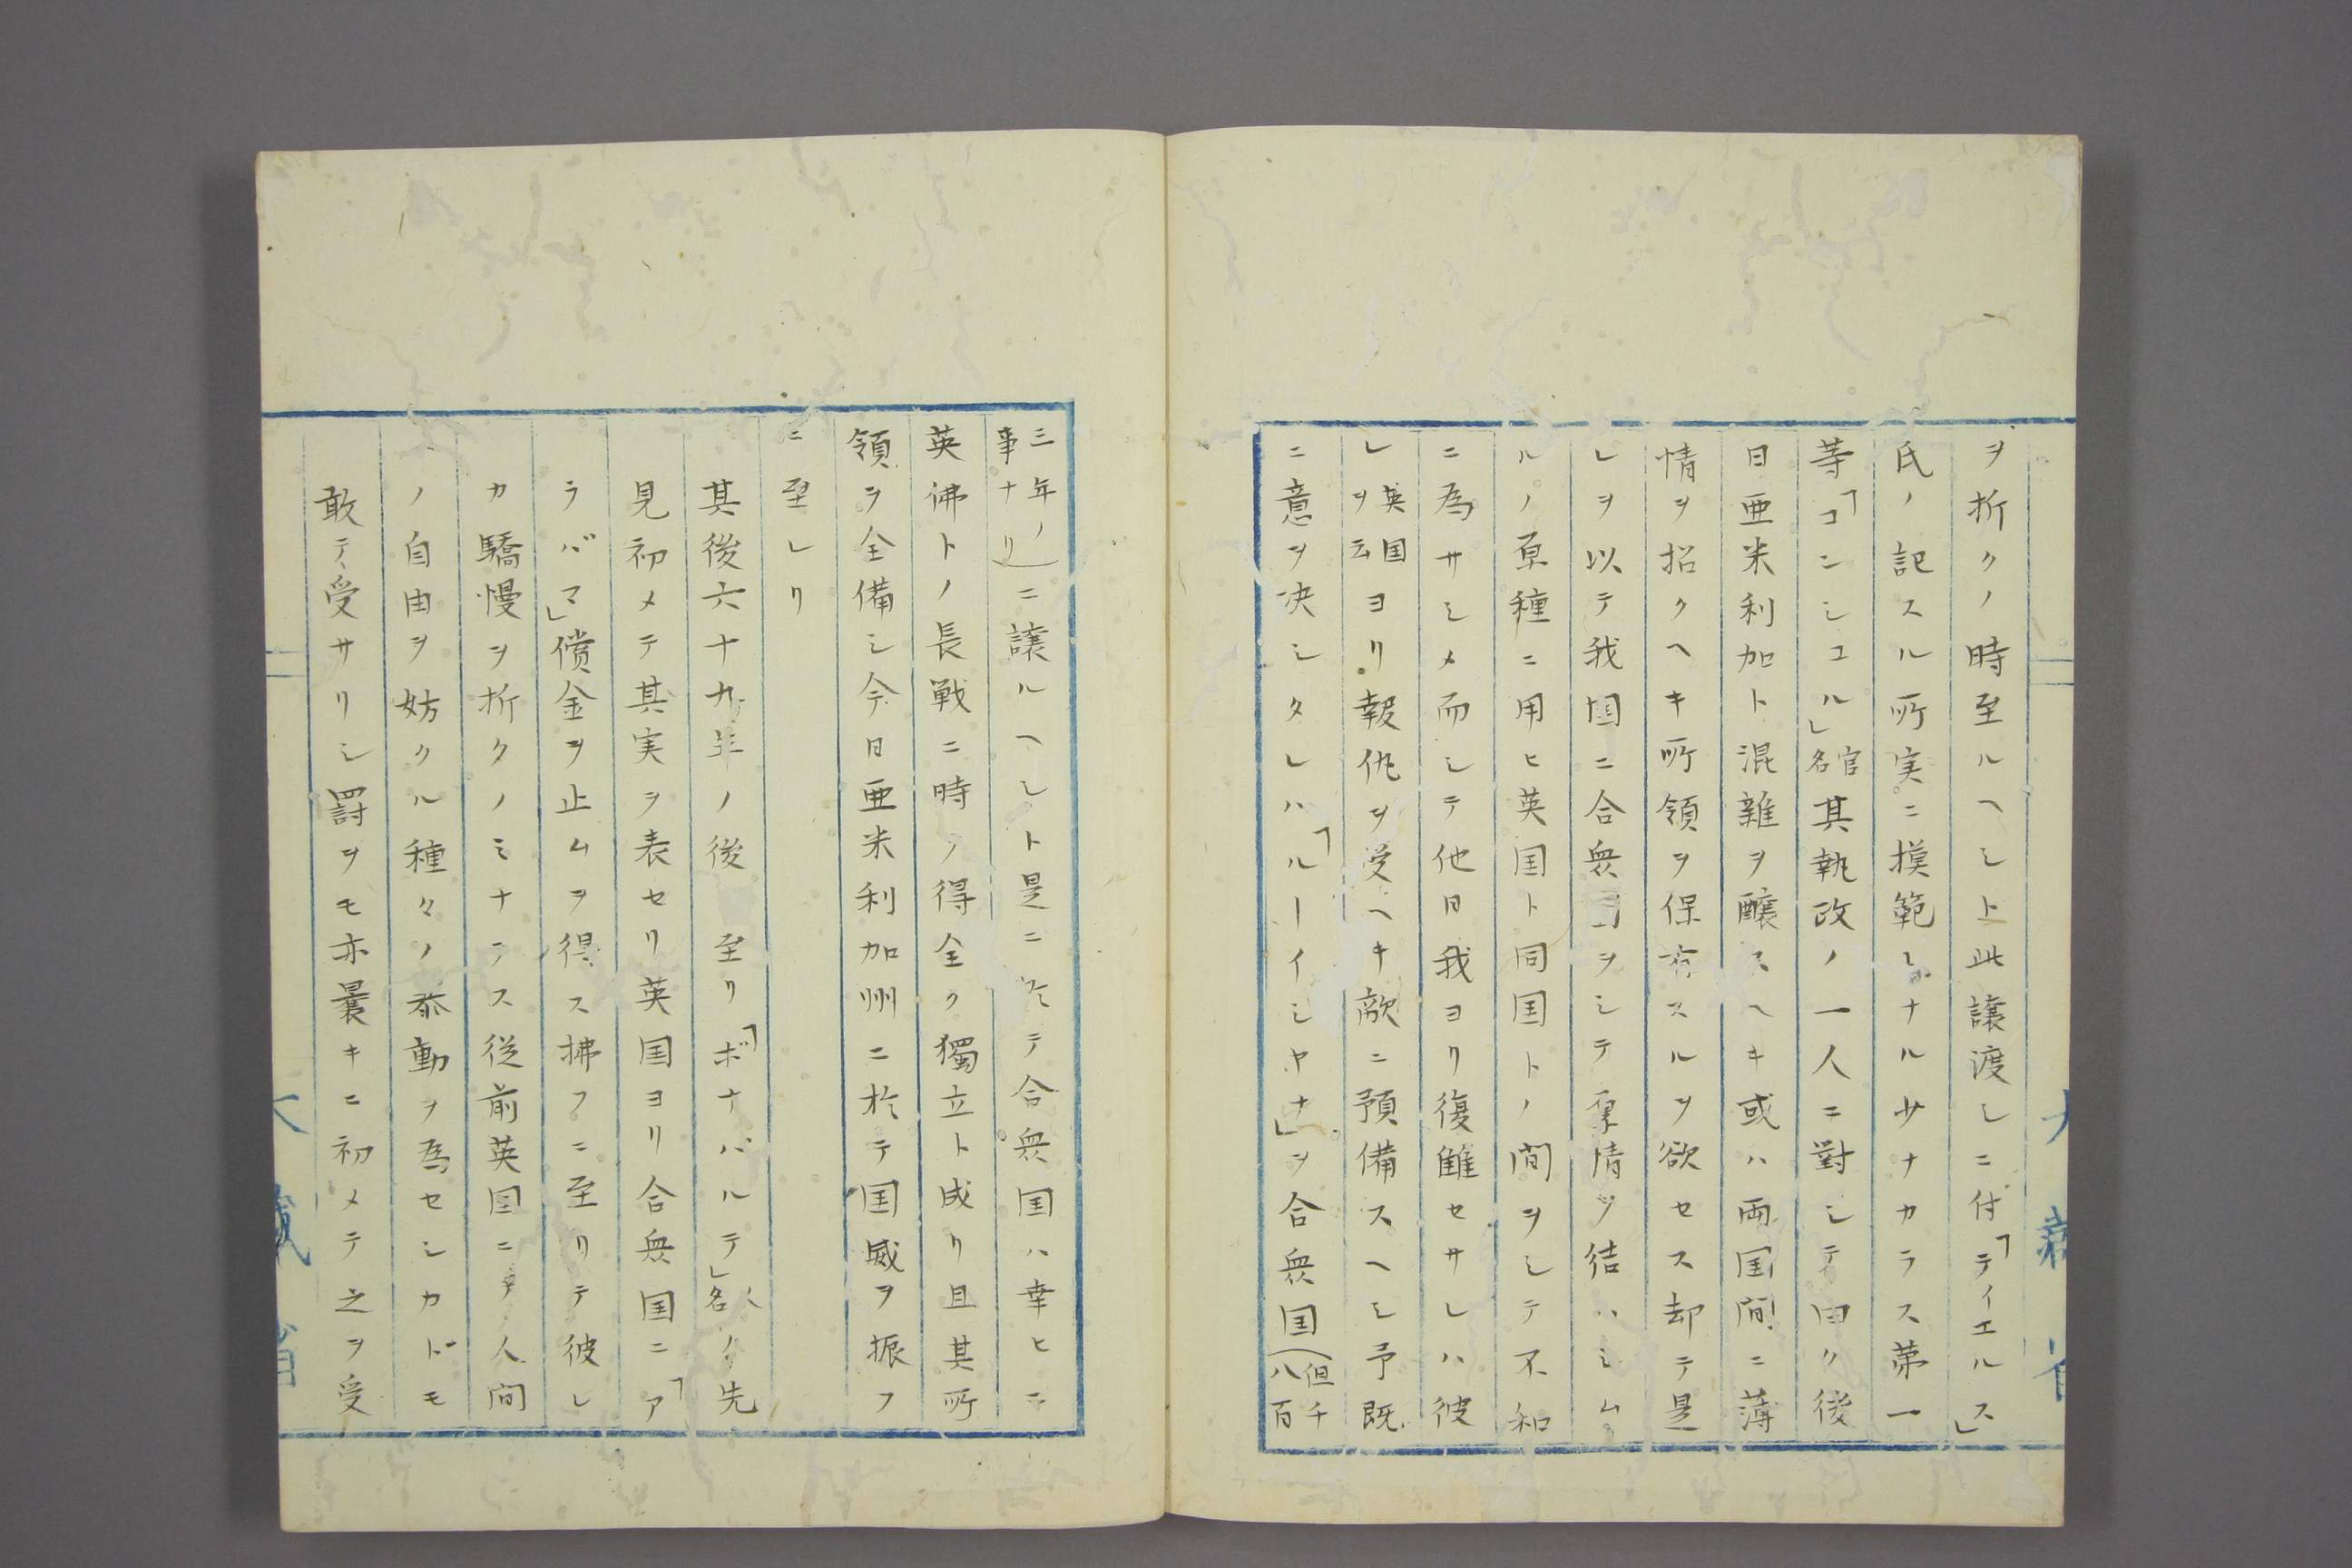 ヲ折クノ時至ルヘシト此譲渡シニ付「ティエルス」
氏ノ記スル所実ニ摸範トナル少ナカラス第一
等「コンシユル」官名其執政ノ一人ニ對シテ曰ク後
日亜米利加ト混雑ヲ醸スヘキ或ハ両国間ニ薄
情ヲ招クヘキ所領ヲ保有スルヲ欲セス却テ是
レヲ以テ我国ニ合衆国ヲシテ厚情ヲ結ハシム
ルノ原種ニ用ヒ英国ト同国トノ間ヲシテ不和
ニ為サシメ而シテ他日我ヨリ復讎セサレハ彼
レ英国ヲ云ヨリ報仇ヲ受ヘキ敵ニ預備スヘシ予既
ニ意ヲ决シタレハ「ルーイシヤナ」ヲ合衆国(但千八百
三年ノ事ナリ)ニ譲ルヘシト是ニ於テ合衆国ハ幸ヒニ
英佛トノ長戦ニ時ヲ得全ク獨立ト成リ且其所
領ヲ全備シ今日亜米利加州ニ於テ国威ヲ振フ
ニ至レリ
其後六十九年ノ後 至リ「ボナパルテ」人名ノ先
見初メテ其実ヲ表セリ英国ヨリ合衆国ニ「ア
ラバマ」償金ヲ止ムヲ得ス拂フニ至リテ彼レ
カ驕慢ヲ折クノミナラス従前英国ニテ人間
ノ自由ヲ妨クル種々ノ挙動ヲ為セシカドモ
敢テ受サリシ罸ヲモ亦曩キニ初メテ之ヲ受
大藏省
大藏省